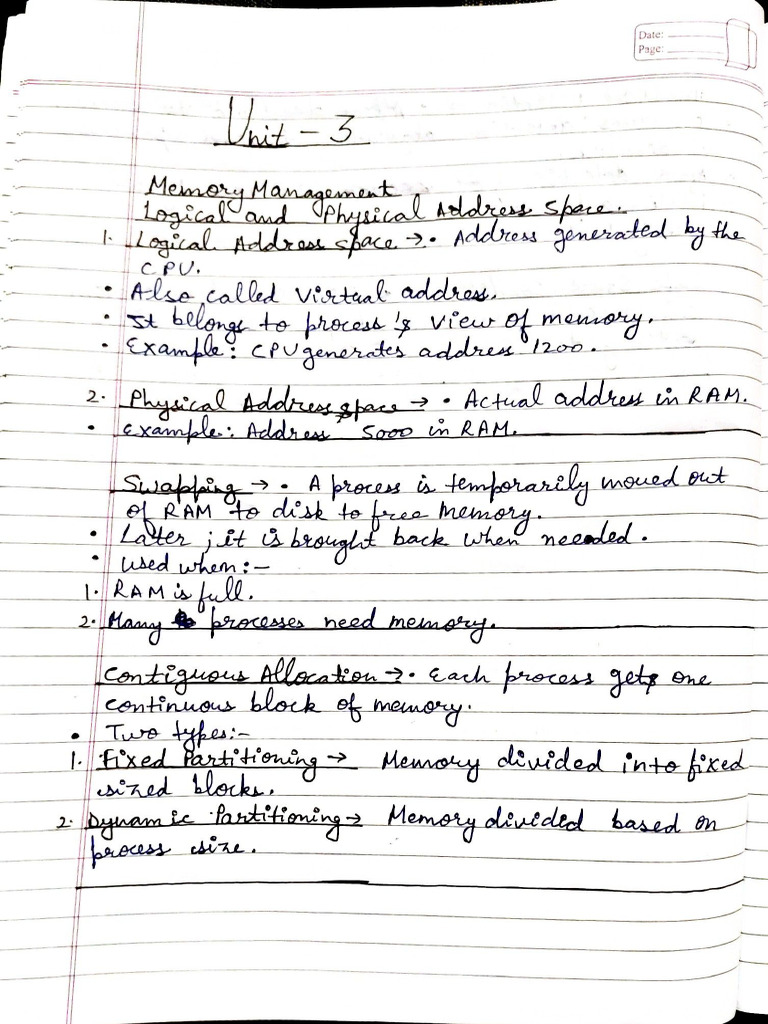 Date:
Page:
Unit - 3
Memory Management
Logical and Physical Address Space.
1. Logical Address space → • Address generated by the
CPU.
• Also called Virtual address.
• It bllongs to process's view of memory.
• Example: CPU generates address 1200.
2. Physical Address space → • Actual address in RAM.
• Example: Address 5000 in RAM.
Swapping → • A process is temporarily moved out
of RAM to disk to free memory.
• Later ; it is brought back when needed.
• Used when:-
1. RAM is full.
2. Many processes need memory.
Contiguous Allocation → • Each process gets one
continuous block of memory.
• Two types:-
1. Fixed Partitioning → Memory divided into fixed
sized blocks.
2. Dynamic Partitioning → Memory divided based on
process size.